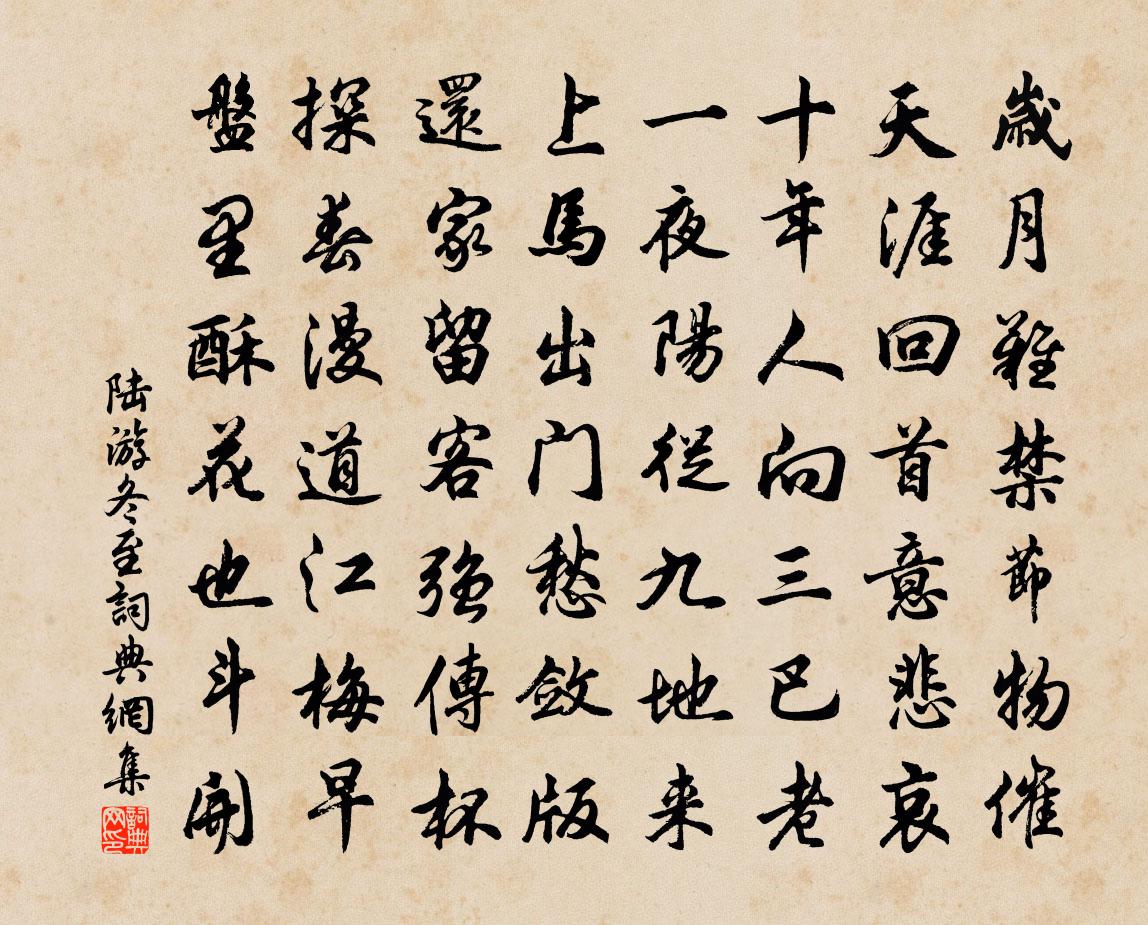 歲月難禁節物催
天涯回首意悲哀
十年人向三巴老
一夜陽從九地来
上馬出門愁斂版
還家留客強傳杯
探春漫道江梅早
盤里酥花也斗開
陆游冬至詞典網集
詞典网印